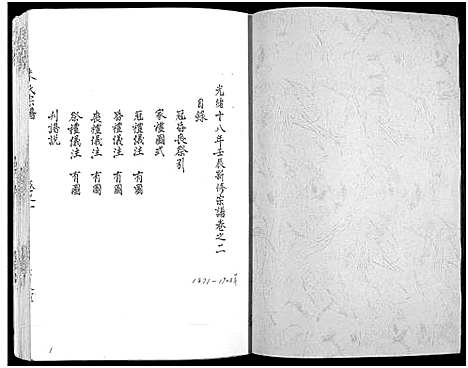 光緒十八年壬辰新修宗譜卷之二
目錄
冠昏喪祭引
家禮圖式
冠禮儀注 有圖
昏禮儀注 有圖
喪禮儀注 有圖
祭禮儀注 有圖
刊譜說
1